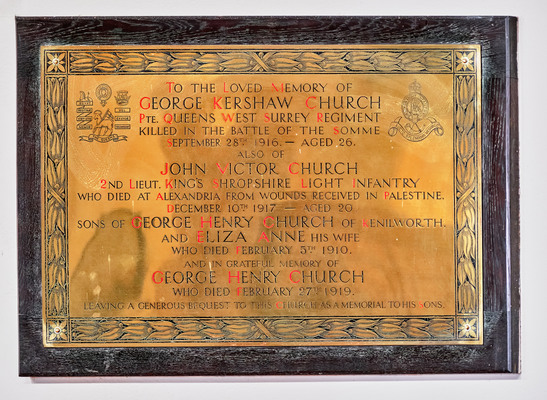 TO THE LOVED MEMORY OF
GEORGE KERSHAW CHURCH
PTE. QUEENS WEST SURREY REGIMENT
KILLED IN THE BATTLE OF THE SOMME
SEPTEMBER 28TH 1916. — AGED 26.
ALSO OF
JOHN VICTOR CHURCH
2ND LIEUT. KING'S SHROPSHIRE LIGHT INFANTRY
WHO DIED AT ALEXANDRIA FROM WOUNDS RECEIVED IN PALESTINE.
DECEMBER 10TH 1917 — AGED 20
SONS OF GEORGE HENRY CHURCH OF KENILWORTH.
AND ELIZA ANNE HIS WIFE
WHO DIED FEBRUARY 5TH 1910.
AND IN GRATEFUL MEMORY OF
GEORGE HENRY CHURCH
WHO DIED FEBRUARY 27TH 1919.
LEAVING A GENEROUS BEQUEST TO THIS CHURCH AS A MEMORIAL TO HIS SONS.